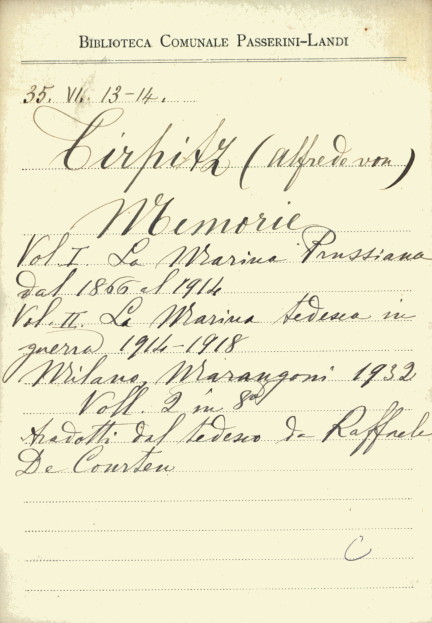 BIBLIOTECA COMUNALE PASSERINI-LANDI
35. VI. 13-14.
Tirpitz (Alfredo von)
Memorie
Vol I La Marina Prussiana
dal 1866 al 1914
Vol. II. La Marina tedesca in
guerra 1914-1918
Milano, Marangoni 1932
Voll. 2 in 8º
tradotti dal tedesco da Raffaele
De Courten
C